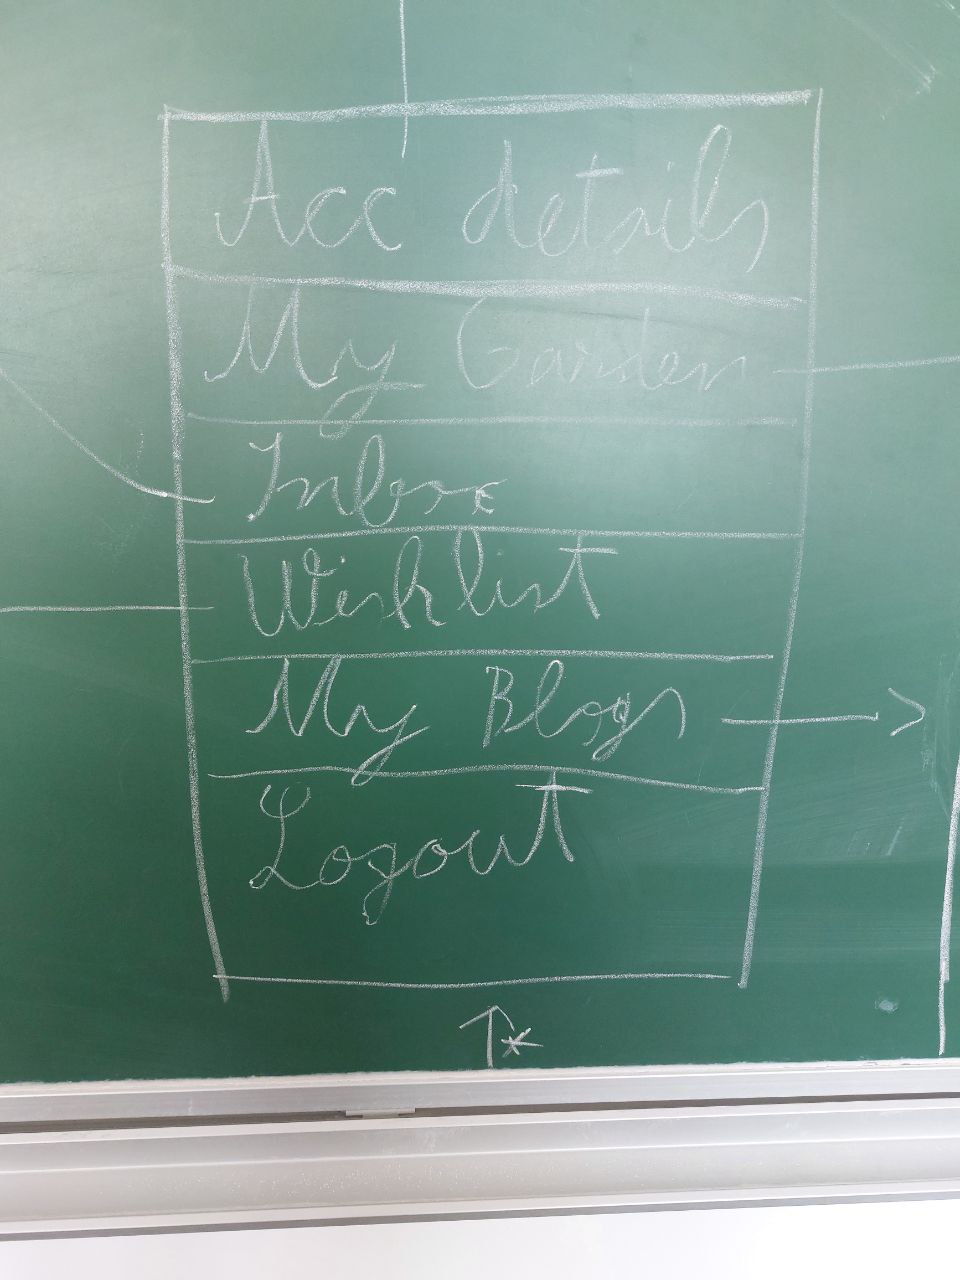 Acc details
My Garden
Inbox
Wishlist
My Blogs
Logout
*